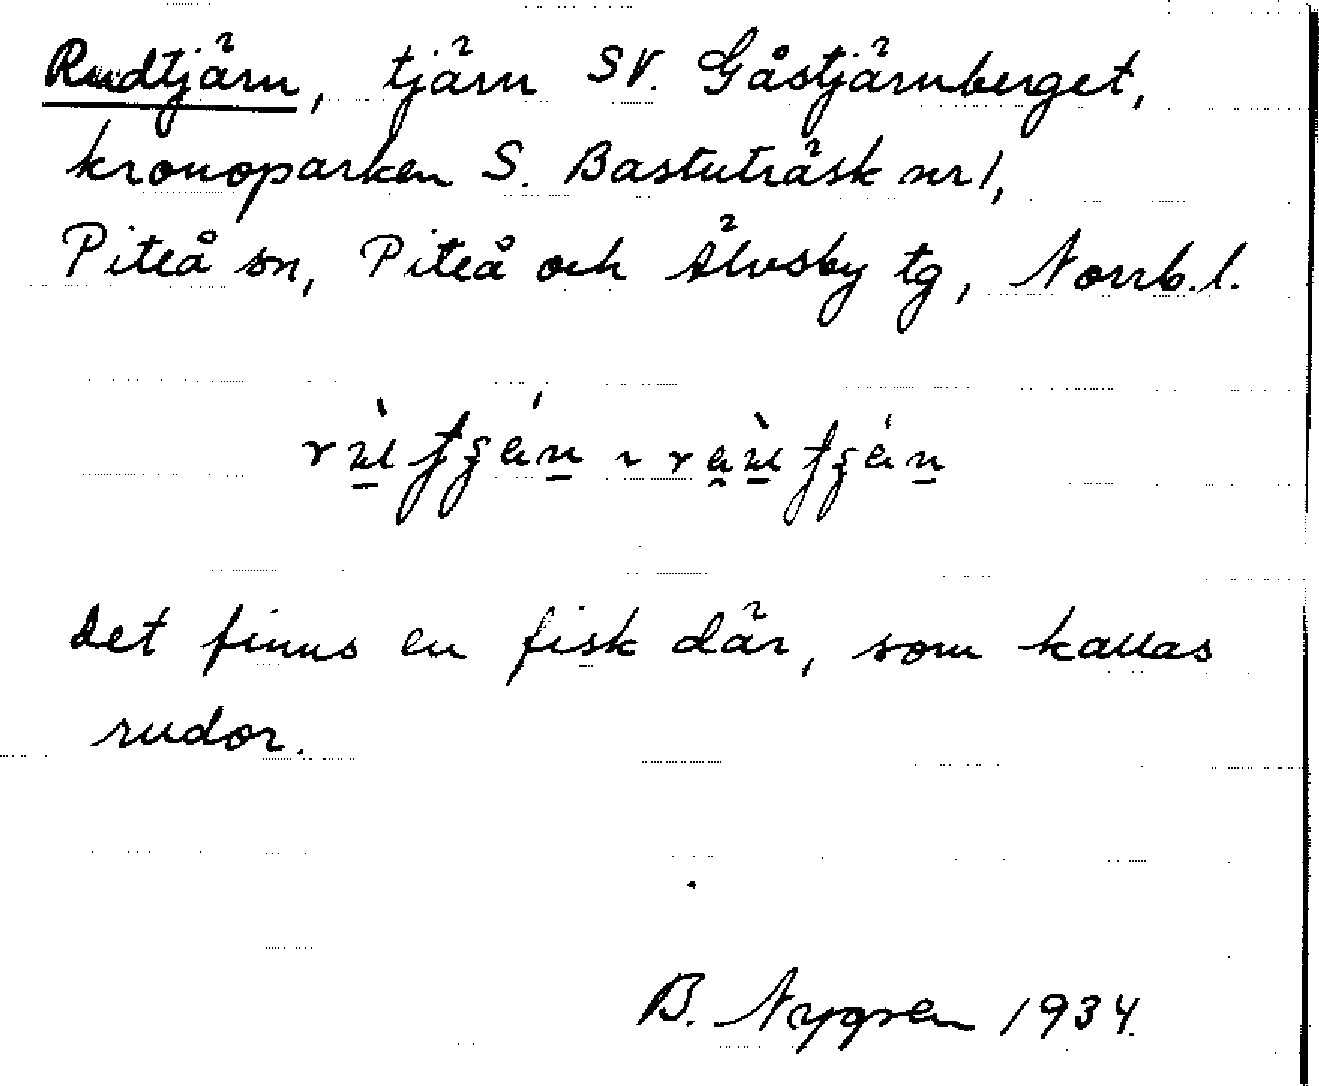 Rudtjärn, tjärn SV. Gåstjärnberget,
kronoparken S. Bastuträsk nr 1,
Piteå sn, Piteå och Älvsby tg, Norrb. l.
Det finns en fisk där, som kallas
rudor.
B. Nygren 1934.